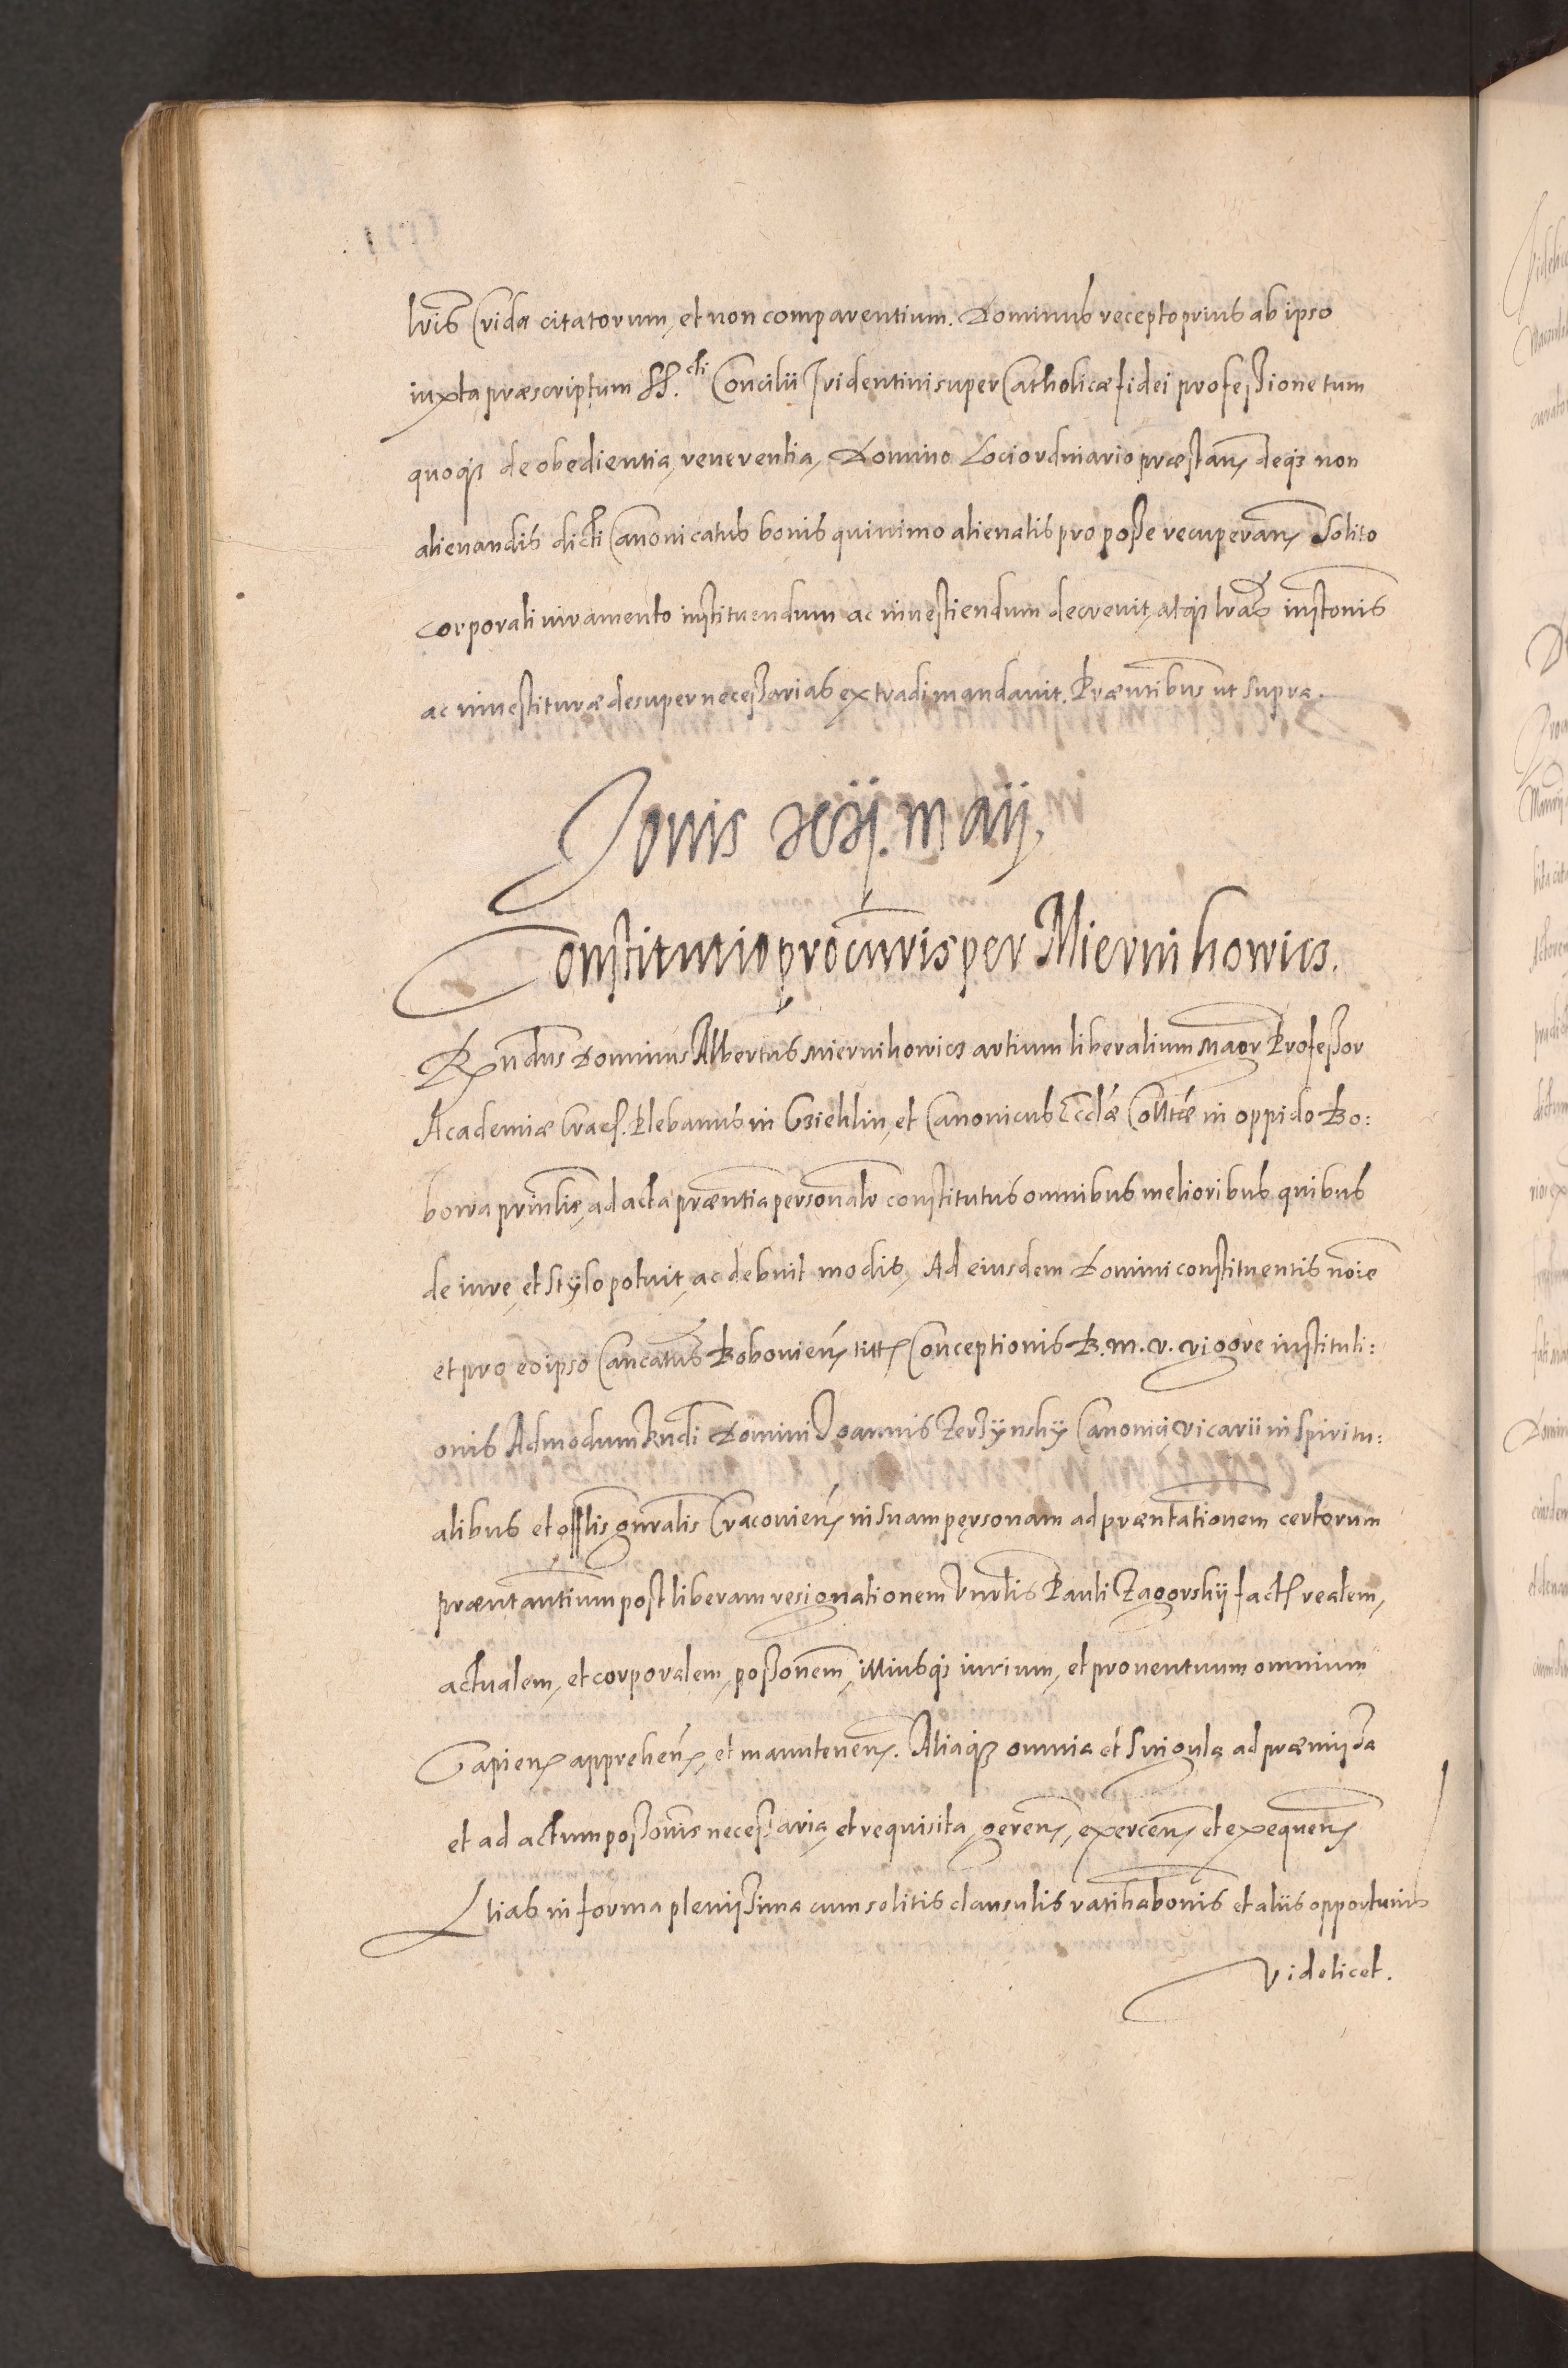 lris Crida citatorum, et non comparentium. Dominus recepto prius ab ipso
iuxta præscriptum SS.cti Concilii Tridentini super Catholicæ fidei profeßione tum
quoqȝ de obedientia, reverentia, Domino Loci ordinario præstan deqȝ non
alienandis dicti Canonicatus bonis quinimo alienatis pro poße recuperan Solito
corporali iuramento instituendum ac investiendum decrevit, atqȝ lras instonis
ac investituræ desuper neceßarias extradi mandavit. Præntibus ut supra.
Jovis xvij. maij.
Constitutio procuris per Miernikowics.
Rndus Dominus Albertus Miernikowics artium liberalium magr Profeßor
Academiæ Crac. Plebanus in Gziehlin, et Canonicus Ecclæ Colltæ in oppido Bo:
bowa prinlis, ad acta præntia personalr constitutus omnibus melioribus quibus
de iure, et stylo potuit, ac debuit modis, Ad eiusdem Domini constituentis noie
et pro eo ipso Cancatus Bobovien titt Conceptionis B. m. v. vigore instituti:
onis Admodum Rndi Domini Joannis Zerzynsky Canonici vicarii in Spiritu:
alibus et offlis gnralis Cracovien in suam personam ad præntationem certorum
præntantium post liberam resignationem Vnrlis Pauli Zagorskij fact realem,
actualem, et corporalem, poßonem, illiusqȝ iurium, et proventuum omnium
Capien apprehen, et manuten. Aliaqȝ omnia et Singula ad præmißa
et ad actum poßonis neceßaria, et requisita, geren, exercen et exequen
Ltias in forma plenißima cum solitis clausulis ratihabonis et aliis opportunis
Videlicet.